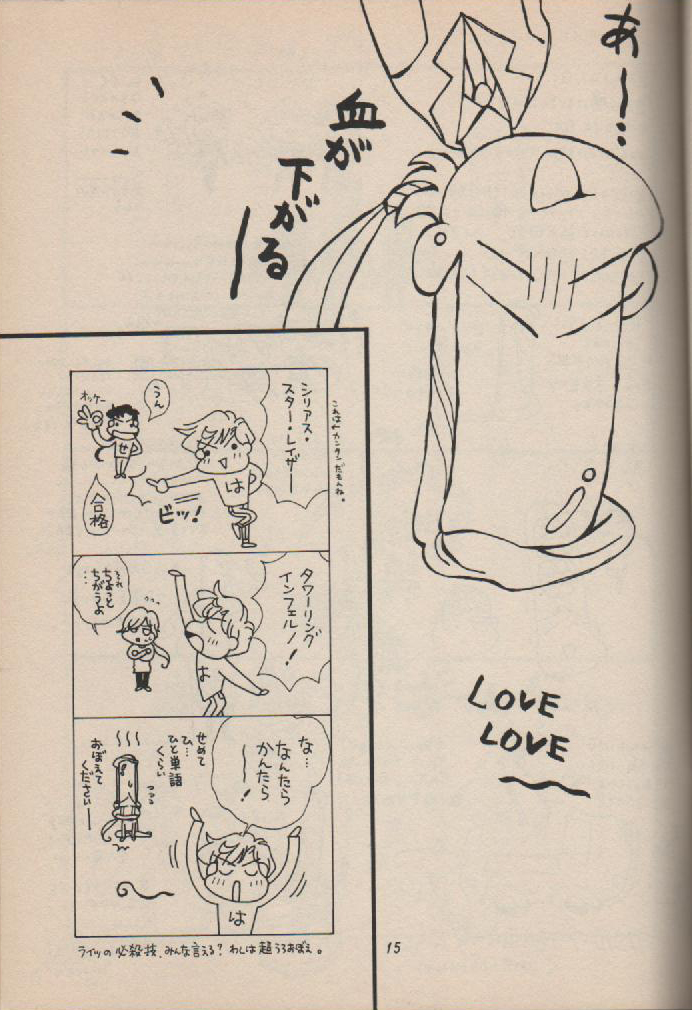 あ〜…
血が
下がる
ー
シリアス・
スター・レイザー
これはカンタンだもんね。
うん
オッケー
せ
は
ビッ!
合格
タワーリング
インフェルノ!
それ
ちょっと
ちがうよ
…
は
な…
なんたら
かんたら
〜〜!
せめて
ひ…
ひと単語
くらい
おぼえて
ください──
は
ライツの必殺技、みんな言える?わしは超うろおぼえ。
LOVE
LOVE
15